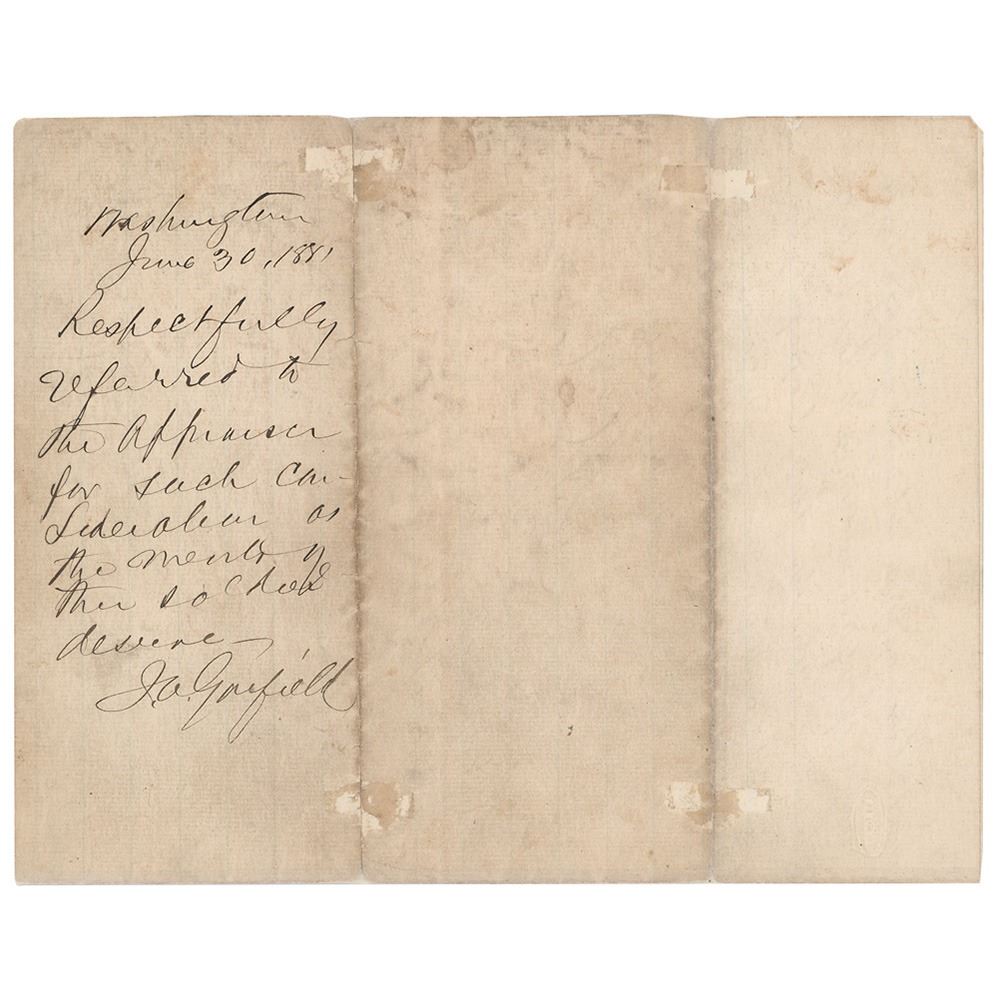 Washington
June 30, 1881
Respectfully
referred to
the Appraiser
for such con-
sideration as
the merits of
the soldier
deserve
J.A. Garfield